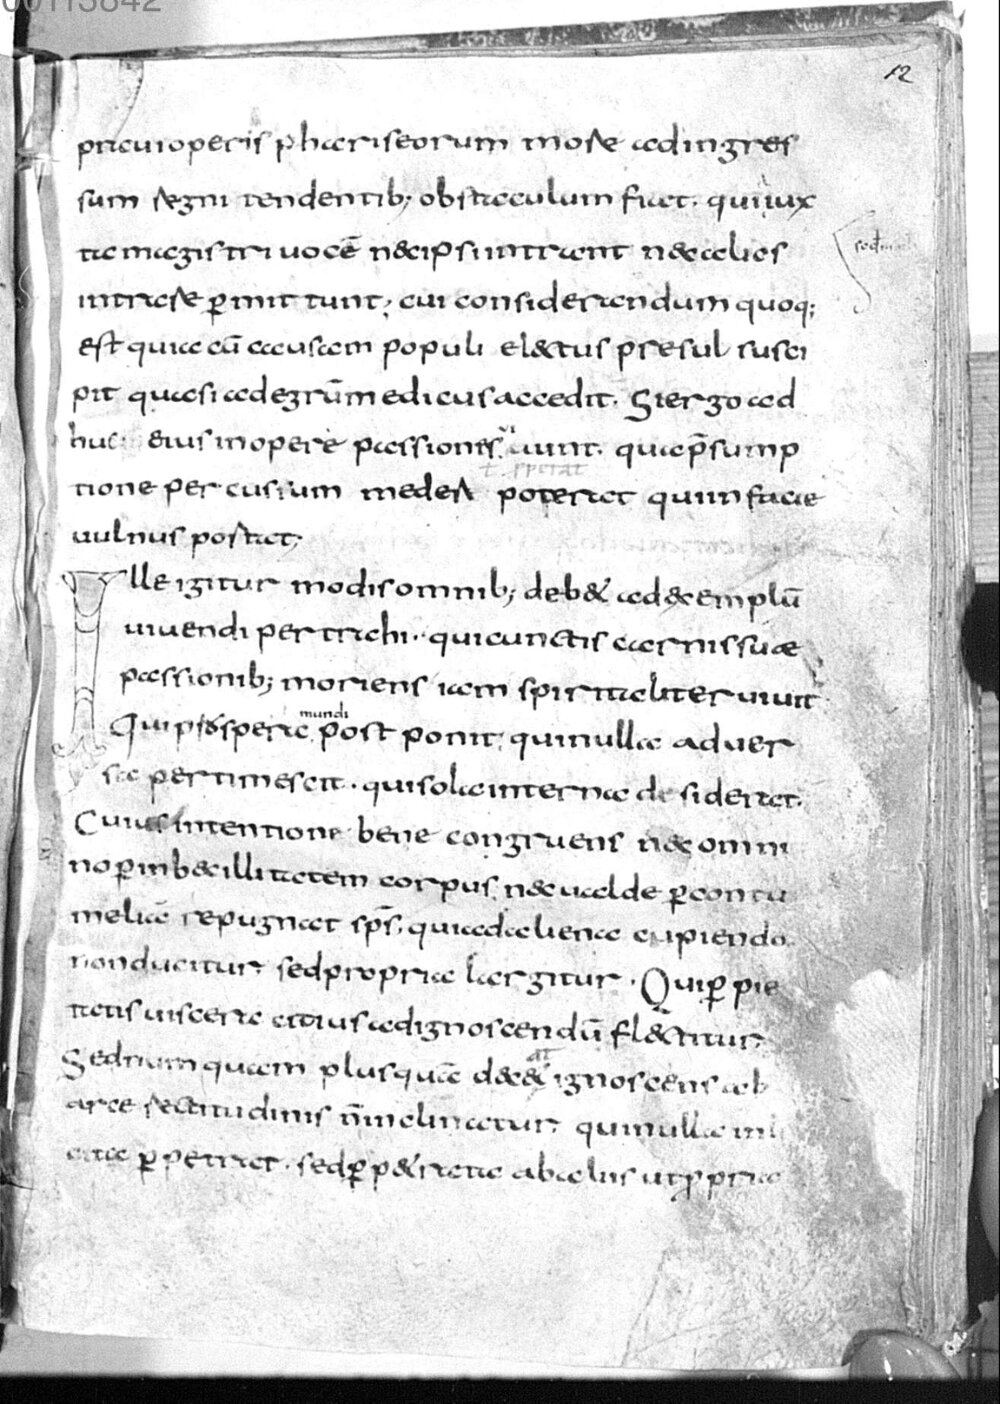 00113842
12
praui operis phariseorum more ad ingres
sum regni tendentib; obstaculum fiat. qui iux
ta magistri uocē nec ipsi intrant nec alios
intrare ꝑmittunt; cui considerandum quoq;
est quia cū causam populi electus presul susci
pit quasi ad egrūm medicus accedit. Si ergo ad
huc eius in opere passiones uiuunt. qua p̄sump
tione percussum mederi poterat qui in facie
uulnus portat;
Ille igitur modis omnib; debet ad exemplū
uiuendi pertrahi. qui cunctis carnis suae
passionib; moriens iam spiritaliter uiuit
Qui prospera mundi post ponit; qui nulla aduer
sa pertimescit. qui sola interna desiderat.
Cuius intentione bene congruens nec omni
no ꝑ inbecillitatem corpus, nec ualde ꝑ contu
meliā repugnat sp̄s. qui ad aliena cupienda
non ducitur sed propria largitur. Qui ꝑ pie
tatis uiscera citius ad ignoscendū flectitur
Sed numquam plus quā decet ignoscens ab
arce rectitudinis n̄ inclinatur. qui nulla inli
cita ꝑpetrat. sed ꝑpetrata ab aliis ut ꝓpria